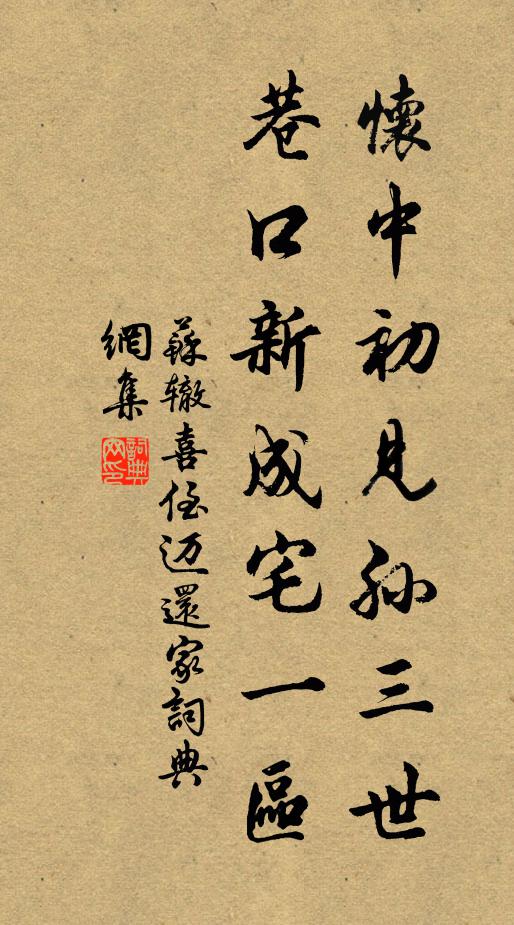 懷中初見孫三世
巷口新成宅一區
蘇辙喜侄迈還家詞典
網集
詞典
网印